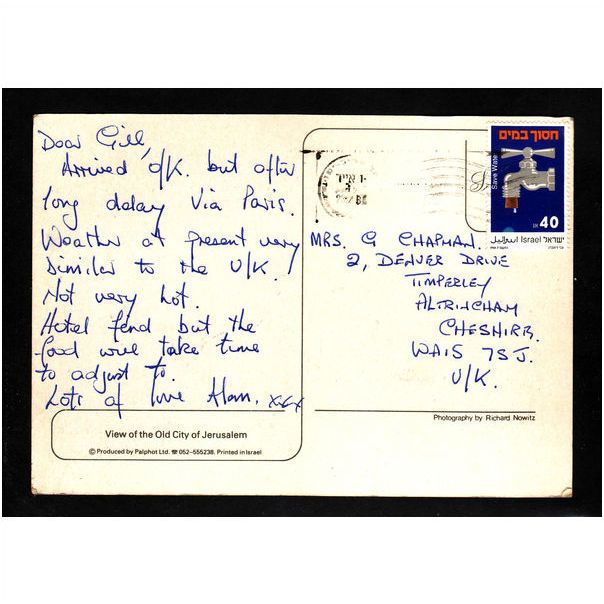 Dear Gill,
Arrived O/K. but after
long delay via Paris.
Weather at present very
similar to the U/K.
Not very hot.
Hotel fend but the
food will take time
to adjust to.
Lots of love Alan. xxx
View of the Old City of Jerusalem
© Produced by Palphot Ltd. ☎ 052-555238. Printed in Israel
חסוך במים
Save Water
IS 40
اسرائيل Israel ישראל
MRS. G CHAPMAN.
2, DENVER DRIVE
TIMPERLEY
ALTRINCHAM
CHESHIRE.
WA15 7SJ.
U/K.
Photography by Richard Nowitz